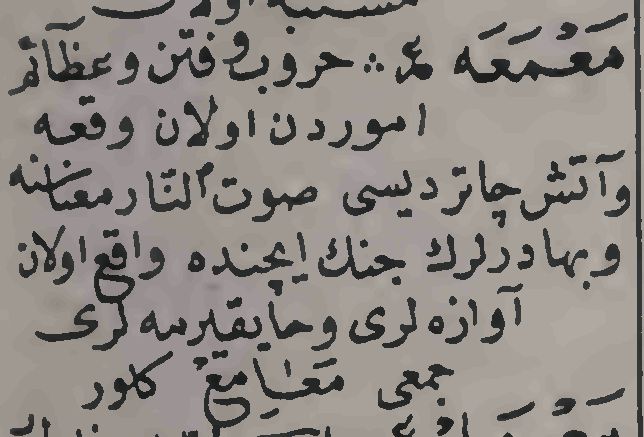 مَعْمَعَه ع ∴ حروب و فتن و عظائم
اموردن اولان وقعه
و آتش چاتردیسی صوت النار معناسنه
و بهادرلرك جنك ایچنده واقع اولان
آوازه لری و حایقیرمه لری
جمعی مَعَامِع كلور